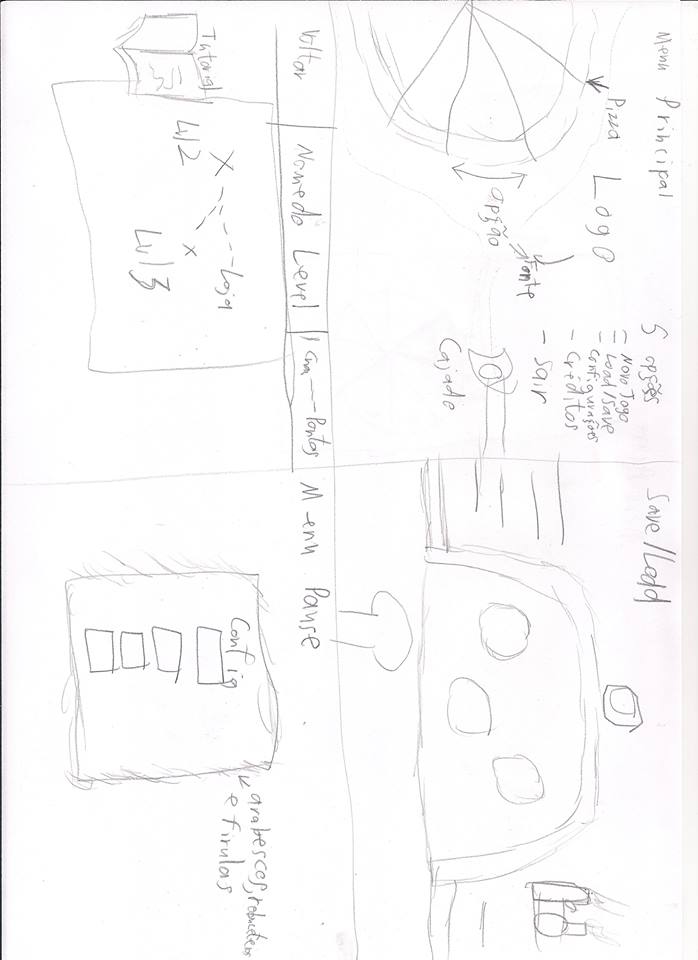 Menu Principal
Pizza
Logo
Fonte
opção
5 opções
- Novo Jogo
- Load/Save
- Configurações
- Créditos
- Sair
Cajado
Save/Load
Voltar
Nome do Level
Pontos
Tutorial
Loja
Lvl2
Lvl3
Menu Pause
Config
arabescos,
e firulas